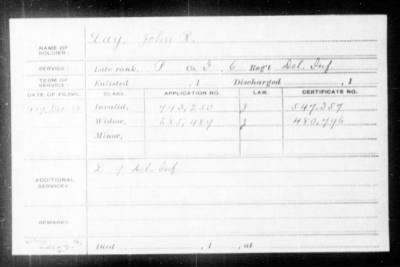 Day, John R.
NAME OF SOLDIER:
SERVICE: Late rank, P Co. I, 6 Reg't Del. Inf
TERM OF SERVICE: Enlisted , 1 Discharged , 1
DATE OF FILING. CLASS. APPLICATION NO. LAW. CERTIFICATE NO.
Invalid, 793,250 J 547,257
Widow, 685,489 J 480,796
Minor,
ADDITIONAL SERVICES: D. 9 Del. Inf
REMARKS:
Died , 1 , at